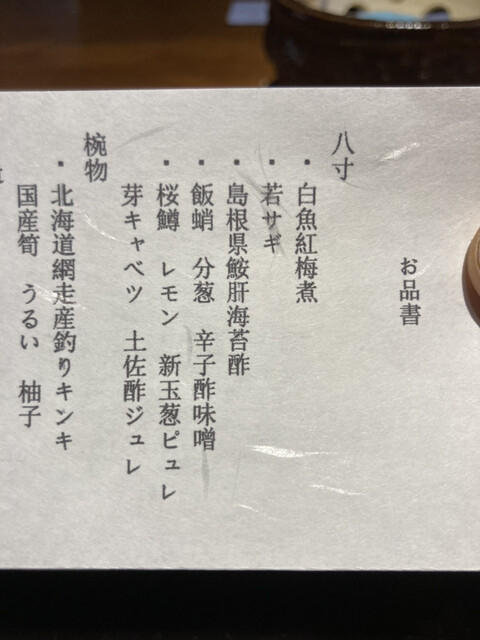 お品書
八寸
・白魚紅梅煮
・若サギ
・島根県鮟肝海苔酢
・飯蛸 分葱 辛子酢味噌
・桜鱒 レモン 新玉葱ピュレ
芽キャベツ 土佐酢ジュレ
椀物
・北海道網走産釣りキンキ
国産筍 うるい 柚子